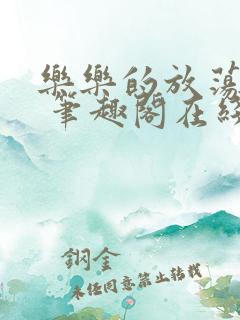 樂樂的放蕩
筆趣閣在線
鋼金
未经同意禁止转载